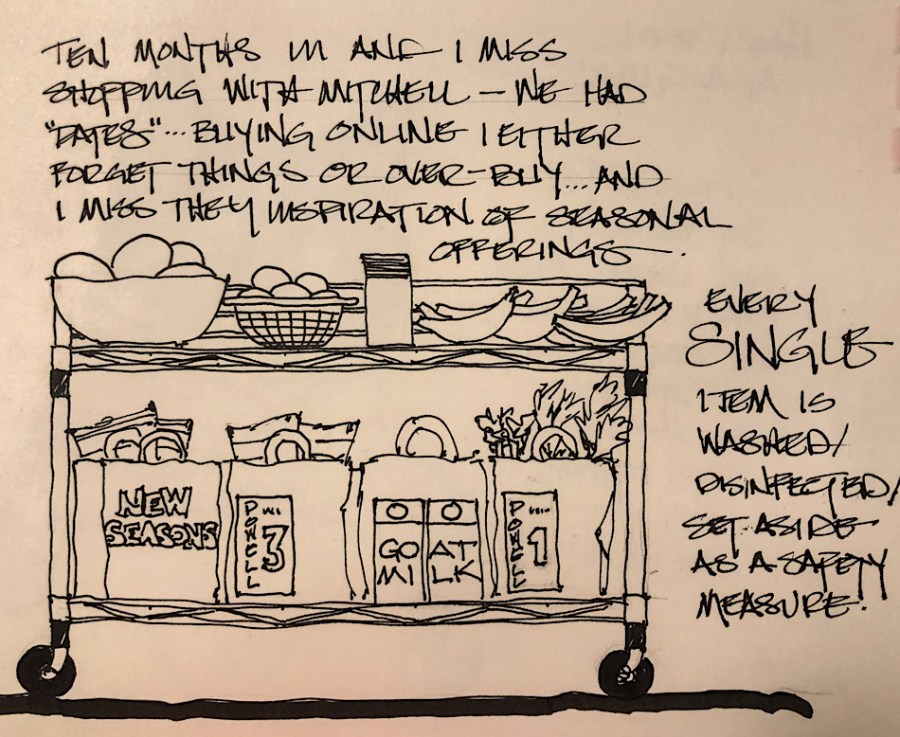 TEN MONTHS IN AND I MISS
SHOPPING WITH MITCHELL — WE HAD
"DATES"... BUYING ONLINE I EITHER
FORGET THINGS OR OVER-BUY... AND
I MISS THEY INSPIRATION OF SEASONAL
OFFERINGS.
EVERY
SINGLE
ITEM IS
WASHED/
DISINFECTED/
SET ASIDE
AS A SAFETY
MEASURE.
NEW
SEASONS
POWELL
3
GO AT
MI LK
POWELL
1